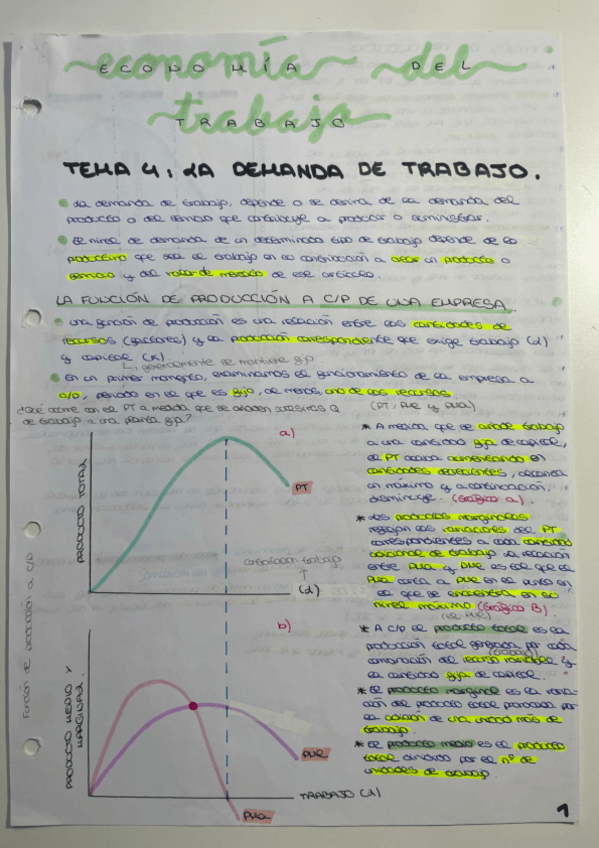 economía del
ECONOMÍA DEL
trabajo
TRABAJO
TEMA 4: LA DEMANDA DE TRABAJO.
La demanda de trabajo, depende o se deriva de la demanda del
producto o del servicio que contribuye a producir o suministrar.
El nivel de demanda de un determinado tipo de trabajo depende de lo
productivo que sea el trabajo en su contribución a crear un producto o
servicio y del valor de mercado de ese artículo.
LA FUNCIÓN DE PRODUCCIÓN A C/P DE UNA EMPRESA.
Una función de producción es una relación entre las cantidades de
recursos (factores) y la producción correspondiente que exige trabajo (L)
y capital (K)
generalmente se mantiene fijo
En un primer momento, examinamos el funcionamiento de la empresa a
c/p, periodo en el que es fijo, al menos, uno de los recursos.
¿Qué ocurre con el PT a medida que se añaden sucesivas Q
de trabajo a una planta fija?
(PT, PMe y PMa)
a)
PRODUCTO TOTAL
PT
cantidad trabajo
(L)
* A medida que se añade trabajo
a una cantidad fija de capital,
el PT acaba aumentando en
cantidades decrecientes, alcanza
un máximo y a continuación,
disminuye. (Gráfico a)
* Los productos marginales
reflejan las variaciones del PT
correspondientes a cada cantidad
adicional de trabajo. La relación
entre PMa y PMe es tal que el
PMa corta a PMe en el punto en
el que se encuentra en su
nivel máximo. (Gráfico B)
(el PMe)
* A C/P el producto total es la
producción total generada por cada
combinación del recurso variable y
(trabajo)
la cantidad fija de capital.
* El producto marginal es la varia-
ción del producto total provocada por
la adición de una unidad más de
trabajo.
* El producto medio es el producto
total dividido por el nº de
unidades de trabajo
Función de producción a C/P
b)
PRODUCTO MEDIO Y
MARGINAL
PMe
TRABAJO (L)
PMa
1